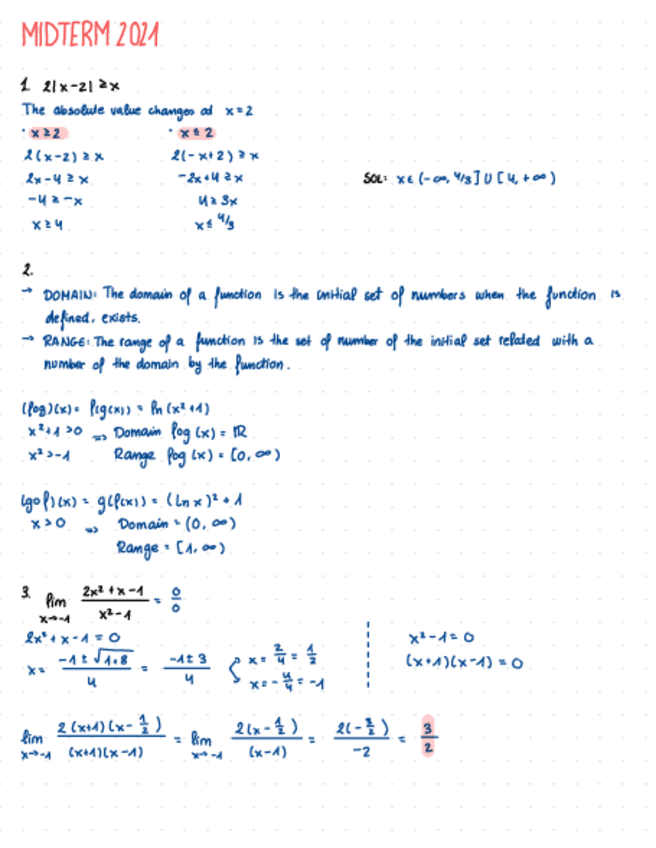 MIDTERM 2021
1. 2|x-2| ≥ x
The absolute value changes at x=2
· x ≥ 2
· x ≤ 2
2(x-2) ≥ x
2(-x+2) ≥ x
2x-4 ≥ x
-2x+4 ≥ x
SOL: x ∈ (-∞, 4/3] ∪ [4, +∞)
-4 ≥ -x
4 ≥ 3x
x ≥ 4
x ≤ 4/3
2.
→ DOMAIN: The domain of a function is the initial set of numbers when the function is
defined, exists.
→ RANGE: The range of a function is the set of number of the initial set related with a
number of the domain by the function.
(fog)(x) = f(g(x)) = ln(x²+1)
x²+1 > 0 ⇒ Domain fog(x) = ℝ
x² > -1 Range fog(x) = [0, ∞)
(gof)(x) = g(f(x)) = (Ln x)² + 1
x > 0 ⇒ Domain = (0, ∞)
Range = [1, ∞)
3. lim x→-1 (2x²+x-1)/(x²-1) = 0/0
2x²+x-1 = 0
x²-1 = 0
x = (-1 ± √1+8)/4 = (-1 ± 3)/4 { x = 2/4 = 1/2
x = -4/4 = -1
(x+1)(x-1) = 0
lim x→-1 2(x+1)(x-1/2)/((x+1)(x-1)) = lim x→-1 2(x-1/2)/(x-1) = 2(-3/2)/-2 = 3/2